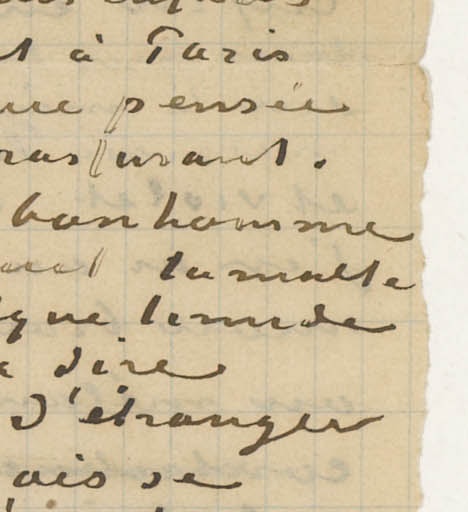 t à Paris
que pensée
rassurant.
bonhomme
tumulte
que timide
dire
d'étranger
ais se